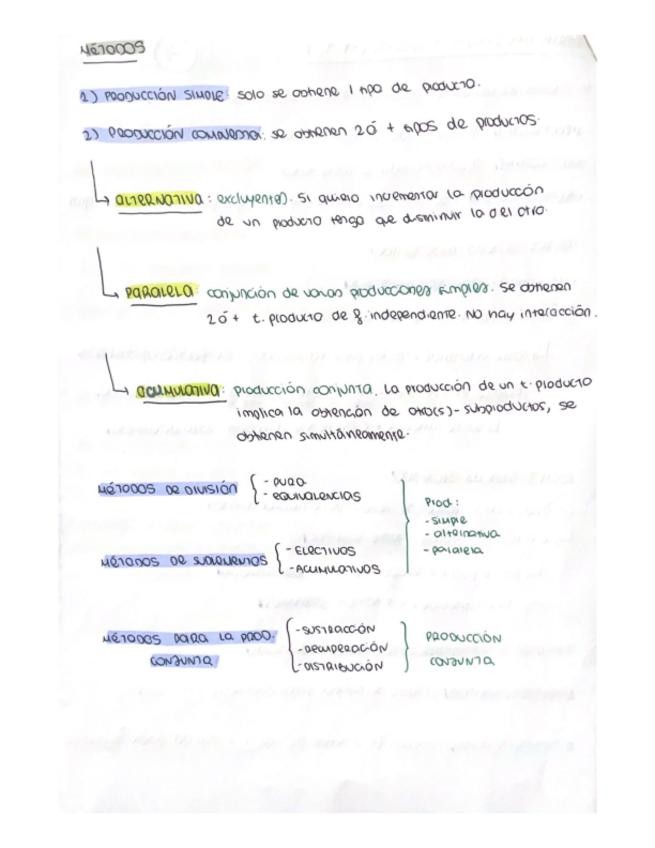 MÉTODOS
1) PRODUCCIÓN SIMPLE: solo se obtiene 1 tipo de producto.
2) PRODUCCIÓN COMPUESTA: se obtienen 2 ó + tipos de productos.
ALTERNATIVA: excluyente). Si quiero incrementar la producción
de un producto tengo que disminuir la del otro.
PARALELA: conjunción de varias producciones simples. Se obtienen
2 ó + t. producto de f. independiente. No hay interacción.
ACUMULATIVA: producción conjunta. La producción de un t. producto
implica la obtención de otro(s) - subproductos, se
obtienen simultáneamente.
MÉTODOS DE DIVISIÓN { - PURA
- EQUIVALENCIAS
Prod:
- simple
- alternativa
- paralela
MÉTODOS DE SUPLEMENTOS { - ELECTIVOS
- ACUMULATIVOS
MÉTODOS PARA LA PROD. CONJUNTA { - SUSTRACCIÓN
- RECUPERACIÓN
- DISTRIBUCIÓN } PRODUCCIÓN
CONJUNTA